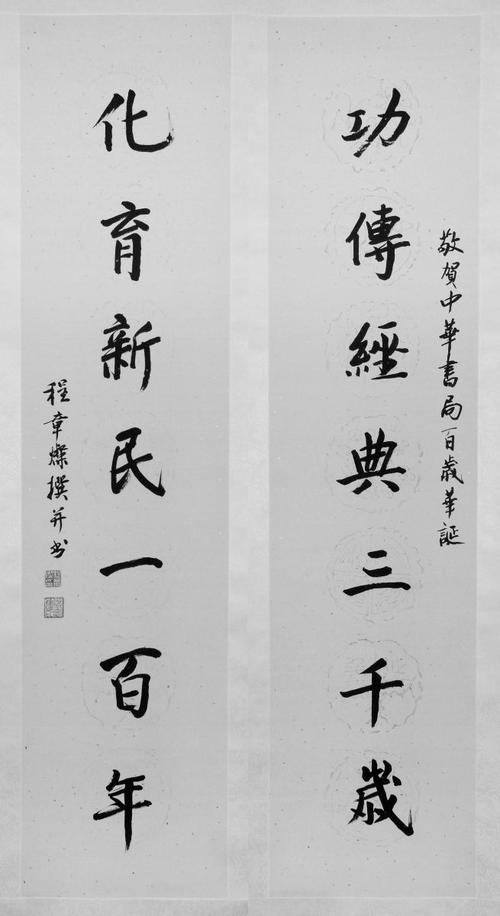 敬賀中華書局百歲華誕
功傳經典三千歲
化育新民一百年
程章燦撰并书